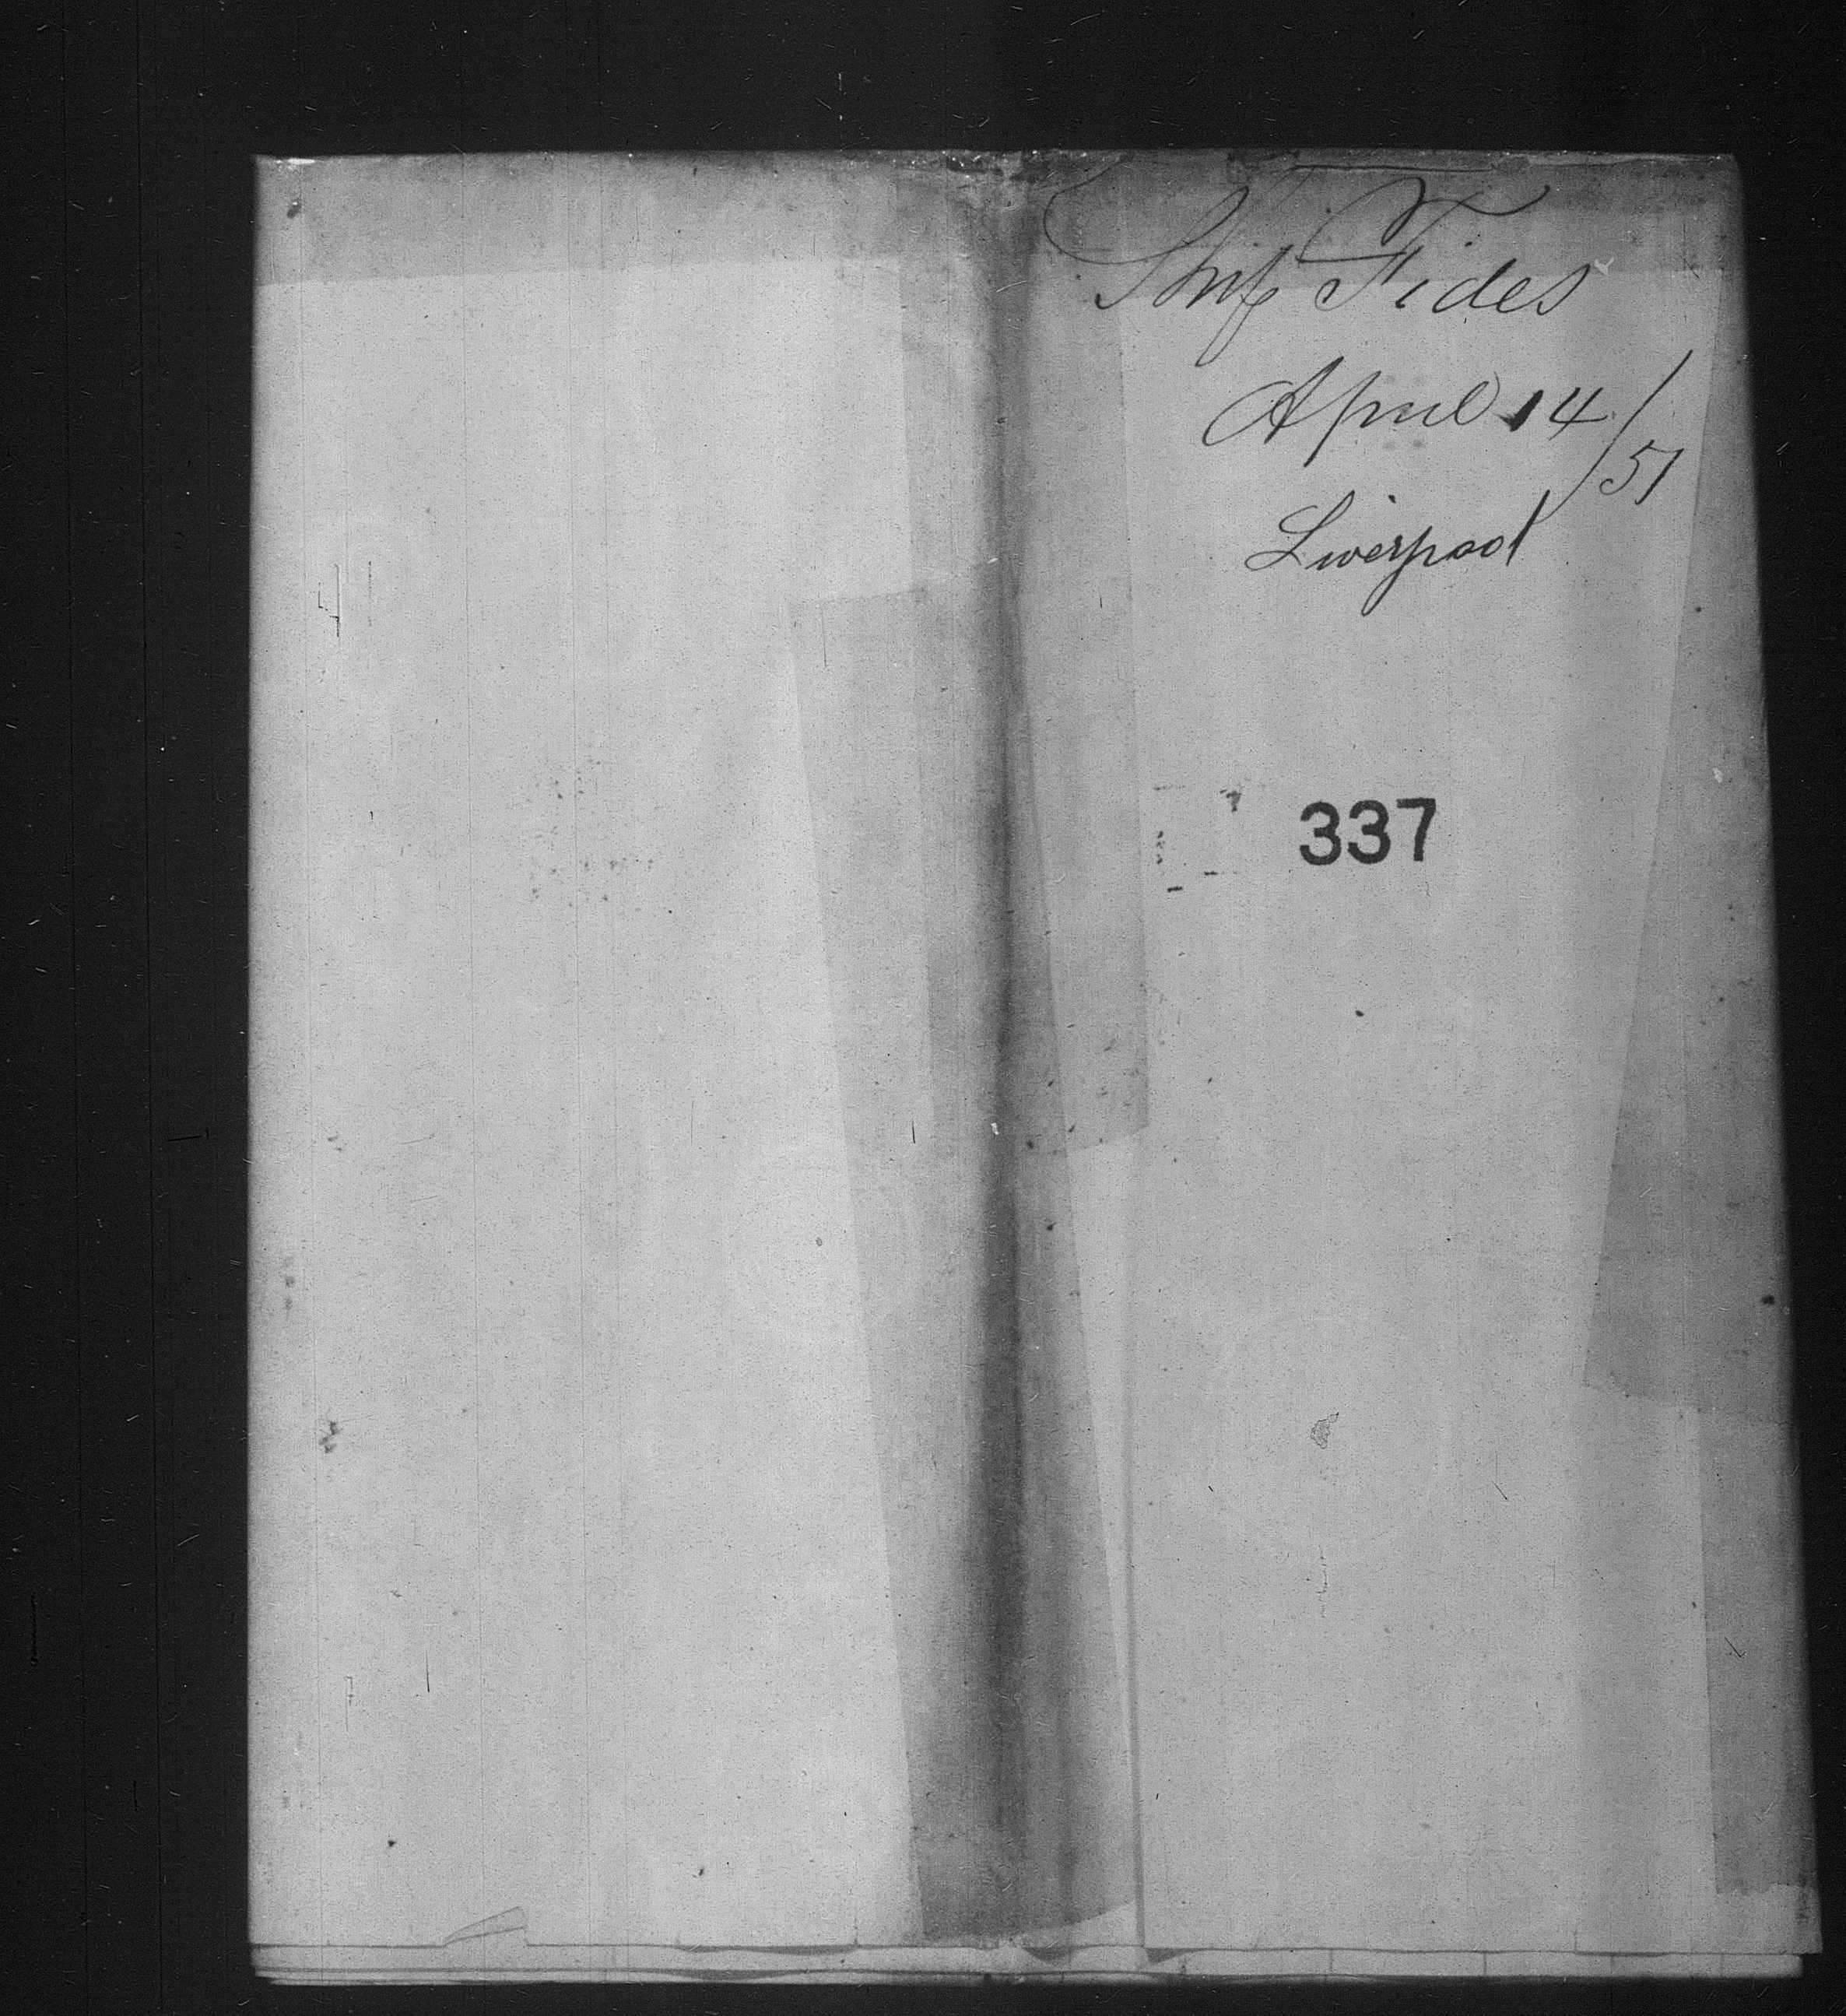 Ship Fides
April 14/51
Liverpool
337